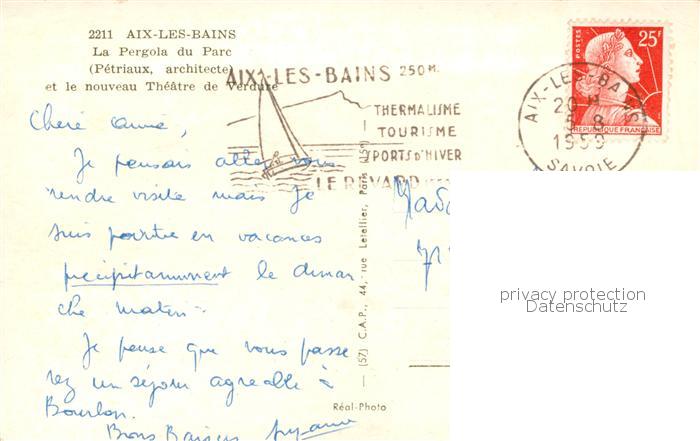 2211 AIX-LES-BAINS
La Pergola du Parc
(Pétriaux, architecte)
et le nouveau Théâtre de Verdure
AIX-LES-BAINS 250 M.
THERMALISME
TOURISME
SPORTS D'HIVER
LE REVARD
POSTES 25F
REPUBLIQUE FRANÇAISE
AIX-LES-BAINS
20 H
5-8
SAVOIE
Chère amie,
Je pensais aller vous
rendre visite mais je
suis partie en vacances
précipitamment le diman
che matin.
Je pense que vous passe
rez un séjour agréable à
Bourbon.
Bons Baisers Suzanne
(57) C.A.P., 44, rue Letellier, Paris (15e)
Réal-Photo
privacy protection
Datenschutz